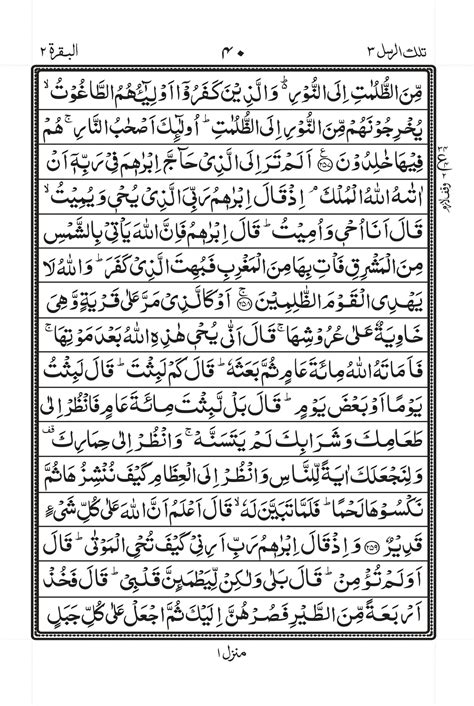 تلك الرسل ٣ ٤٠ البقرة ٢
مِّنَ الظُّلُمٰتِ اِلَى النُّوْرِ ؕ وَالَّذِيْنَ كَفَرُوْۤا اَوْلِيٰٓـُٔهُمُ الطَّاغُوْتُ ۙ
يُخْرِجُوْنَهُمْ مِّنَ النُّوْرِ اِلَى الظُّلُمٰتِ ؕ اُولٰٓئِكَ اَصْحٰبُ النَّارِ ۚ هُمْ
فِيْهَا خٰلِدُوْنَ ﴿٢٥٧﴾ اَلَمْ تَرَ اِلَى الَّذِيْ حَآجَّ اِبْرٰهٖمَ فِيْ رَبِّهٖۤ اَنْ
اٰتٰىهُ اللّٰهُ الْمُلْكَ ۘ اِذْ قَالَ اِبْرٰهٖمُ رَبِّيَ الَّذِيْ يُحْيٖ وَيُمِيْتُ ۙ
قَالَ اَنَا اُحْيٖ وَاُمِيْتُ ؕ قَالَ اِبْرٰهٖمُ فَاِنَّ اللّٰهَ يَاْتِيْ بِالشَّمْسِ
مِنَ الْمَشْرِقِ فَاْتِ بِهَا مِنَ الْمَغْرِبِ فَبُهِتَ الَّذِيْ كَفَرَ ؕ وَاللّٰهُ لَا
يَهْدِي الْقَوْمَ الظّٰلِمِيْنَ ﴿٢٥٨﴾ اَوْ كَالَّذِيْ مَرَّ عَلٰى قَرْيَةٍ وَّهِيَ
خَاوِيَةٌ عَلٰى عُرُوْشِهَا ۚ قَالَ اَنّٰى يُحْيٖ هٰذِهِ اللّٰهُ بَعْدَ مَوْتِهَا ۚ
فَاَمَاتَهُ اللّٰهُ مِائَةَ عَامٍ ثُمَّ بَعَثَهٗ ؕ قَالَ كَمْ لَبِثْتَ ؕ قَالَ لَبِثْتُ
يَوْمًا اَوْ بَعْضَ يَوْمٍ ؕ قَالَ بَلْ لَّبِثْتَ مِائَةَ عَامٍ فَانْظُرْ اِلٰى
طَعَامِكَ وَشَرَابِكَ لَمْ يَتَسَنَّهْ ۚ وَانْظُرْ اِلٰى حِمَارِكَ قف
وَلِنَجْعَلَكَ اٰيَةً لِّلنَّاسِ وَانْظُرْ اِلَى الْعِظَامِ كَيْفَ نُنْشِزُهَا ثُمَّ
نَكْسُوْهَا لَحْمًا ؕ فَلَمَّا تَبَيَّنَ لَهٗ ۙ قَالَ اَعْلَمُ اَنَّ اللّٰهَ عَلٰى كُلِّ شَيْءٍ
قَدِيْرٌ ﴿٢٥٩﴾ وَاِذْ قَالَ اِبْرٰهٖمُ رَبِّ اَرِنِيْ كَيْفَ تُحْيِ الْمَوْتٰى ؕ قَالَ
اَوَلَمْ تُؤْمِنْ ؕ قَالَ بَلٰى وَلٰكِنْ لِّيَطْمَئِنَّ قَلْبِيْ ؕ قَالَ فَخُذْ
اَرْبَعَةً مِّنَ الطَّيْرِ فَصُرْهُنَّ اِلَيْكَ ثُمَّ اجْعَلْ عَلٰى كُلِّ جَبَلٍ
منزل ١